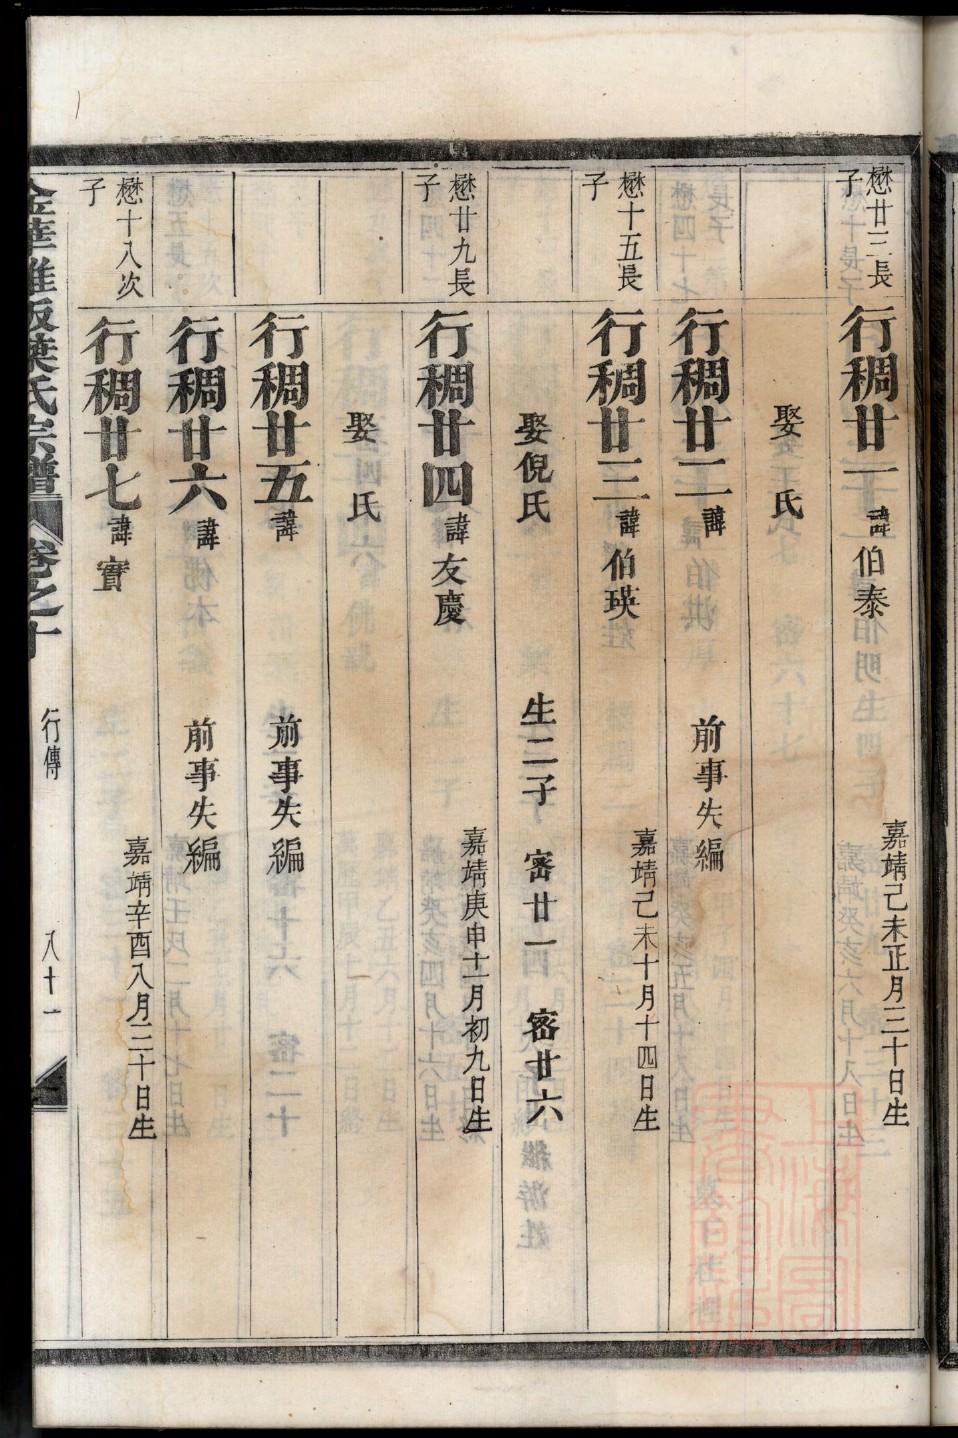 懋廿三長子
行稠廿一諱伯泰
嘉靖己未正月三十日生
娶 氏
行稠廿二諱
前事失編
懋十五長子
行稠廿三諱伯瑛
嘉靖己未十月十四日生
娶倪氏
生二子 密廿一 密廿六
懋廿九長子
行稠廿四諱友慶
嘉靖庚申十一月初九日生
娶 氏
行稠廿五諱
前事失編
行稠廿六諱
前事失編
懋十八次子
行稠廿七諱實
嘉靖辛酉八月二十日生
葉氏宗譜
卷之十
行傳
八十一